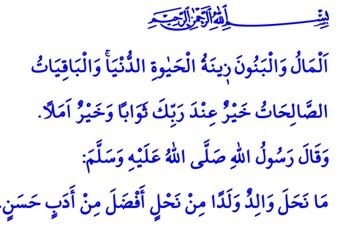 بِسْمِ اللهِ الرَّحْمٰنِ الرَّحِيمِ
اَلْمَالُ وَالْبَنُونَ زِينَةُ الْحَيٰوةِ الدُّنْيَاۚ وَالْبَاقِيَاتُ
الصَّالِحَاتُ خَيْرٌ عِنْدَ رَبِّكَ ثَوَابًا وَخَيْرٌ اَمَلًا.
وَقَالَ رَسُولُ اللهِ صَلَّى اللهُ عَلَيْهِ وَسَلَّمَ:
مَا نَحَلَ وَالِدٌ وَلَدًا مِنْ نَحْلٍ أَفْضَلَ مِنْ أَدَبٍ حَسَنٍ.